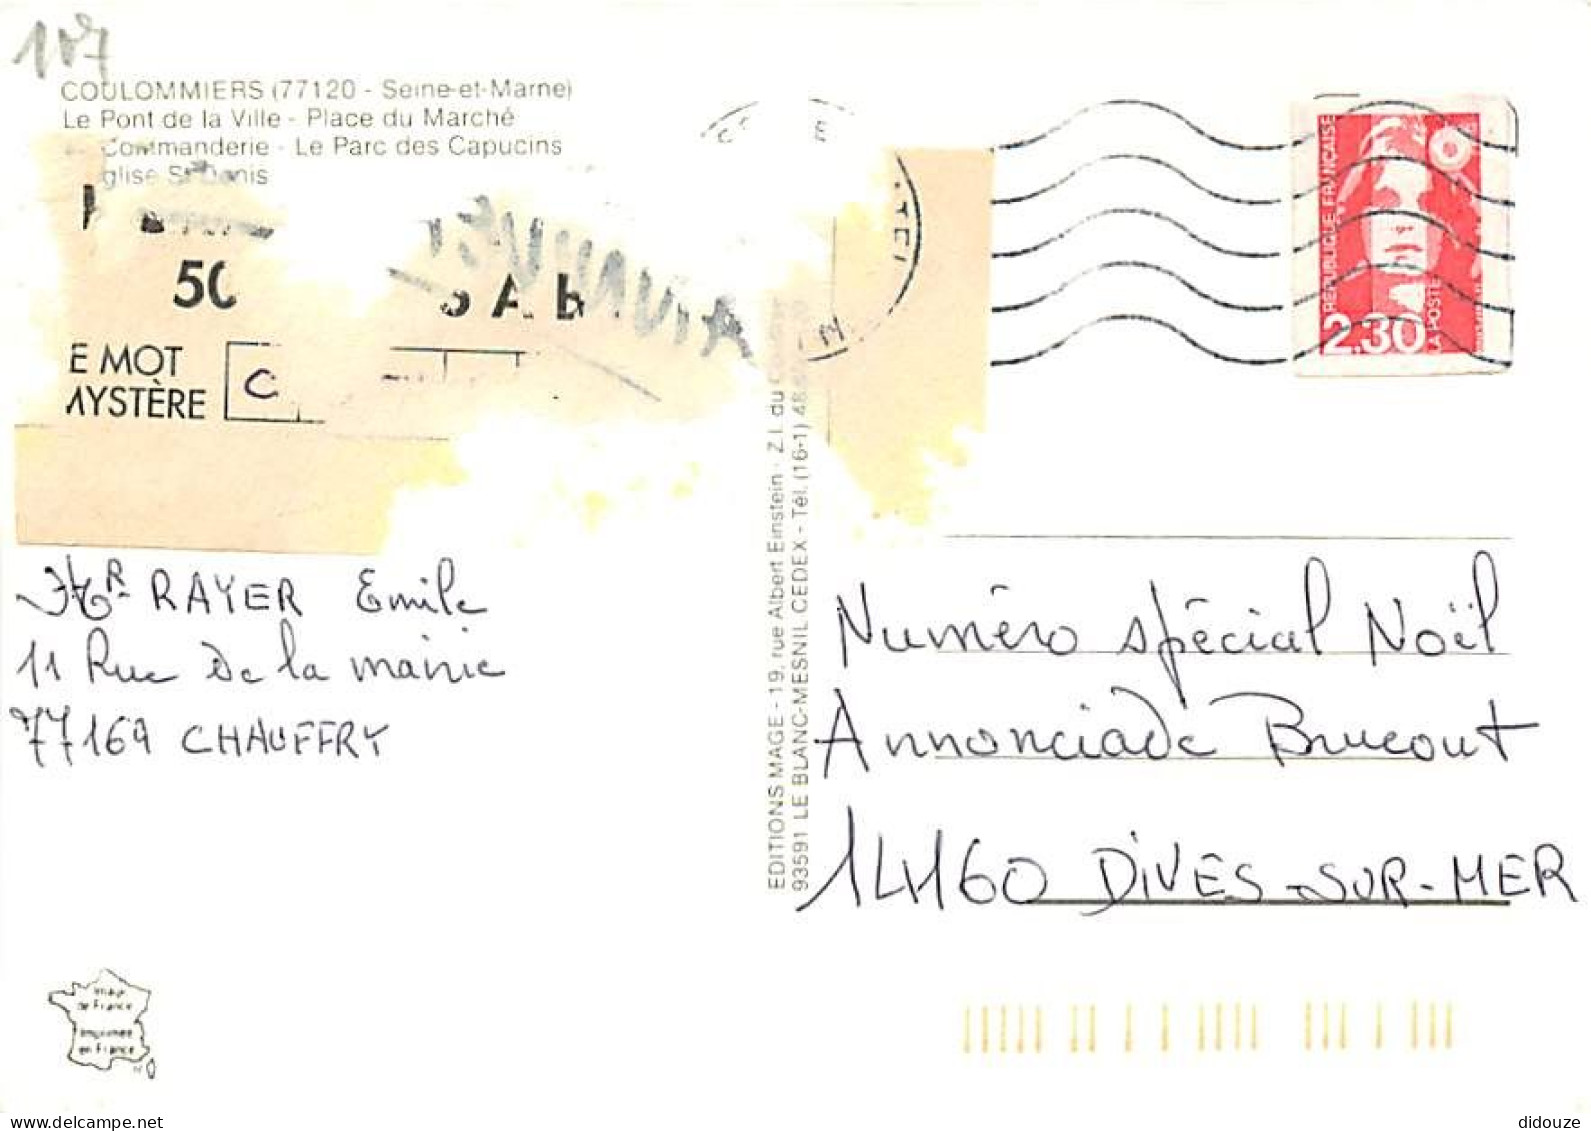 COULOMMIERS (77120 - Seine-et-Marne)
Le Pont de la Ville - Place du Marché
Commanderie - Le Parc des Capucins
glise St Denis
50
E MOT
MYSTÈRE
C
EDITIONS MAGE - 19, rue Albert Einstein - Z.I. du
93591 LE BLANC-MESNIL CEDEX - Tél. (16-1) 48
RÉPUBLIQUE FRANÇAISE
2,30
LA POSTE
Mr RAYER Emile
11 Rue De la mairie
77169 CHAUFFRY
Numéro spécial Noël
Annonciade Brucourt
14160 DIVES-SUR-MER
Image
de France
Imprimée
en France
delcampe.net
didouze